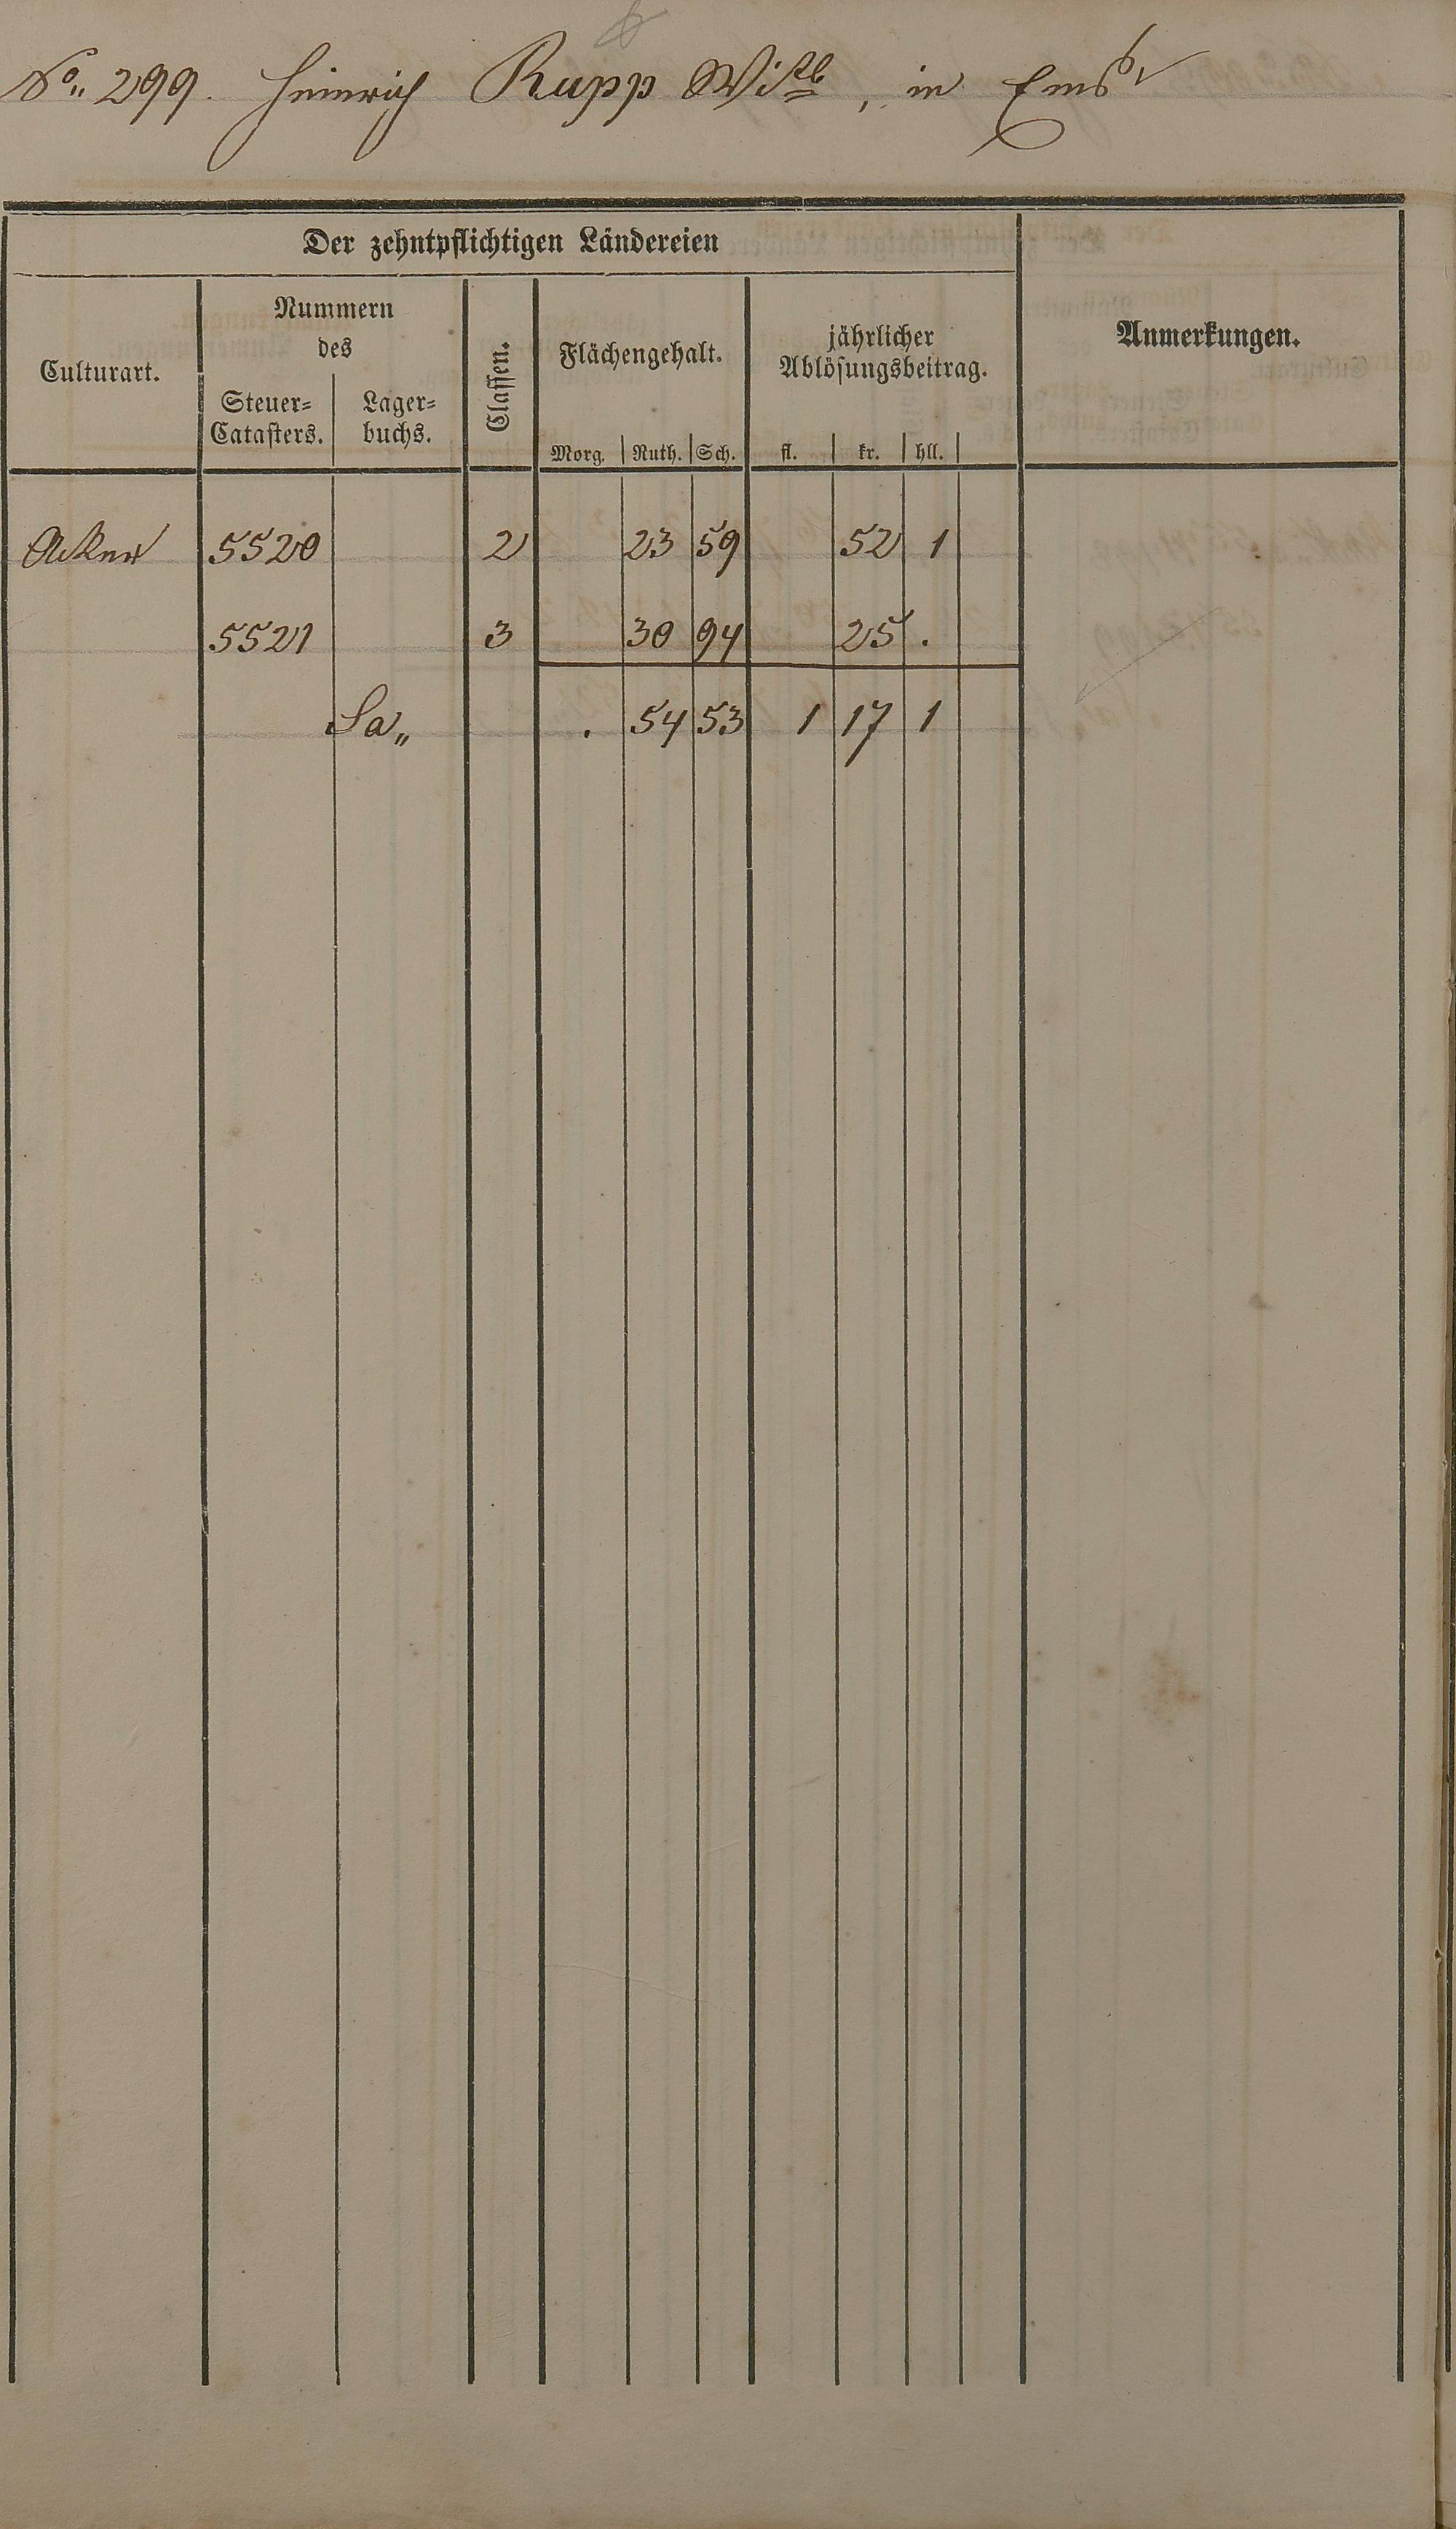 No. 299. Heinrich Rupp Wttb, in Ems
Der zehntpflichtigen Ländereien
Culturart.
Nummern
des
Steuer=
Catasters.
Lager=
buchs.
Classen.
Flächengehalt.
Morg. Ruth. Sch.
jährlicher
Ablösungsbeitrag.
fl. kr. hll.
Anmerkungen.
Acker 5520 2 23 59 52 1
5521 3 30 94 25 .
Sa„ . 54 53 1 17 1